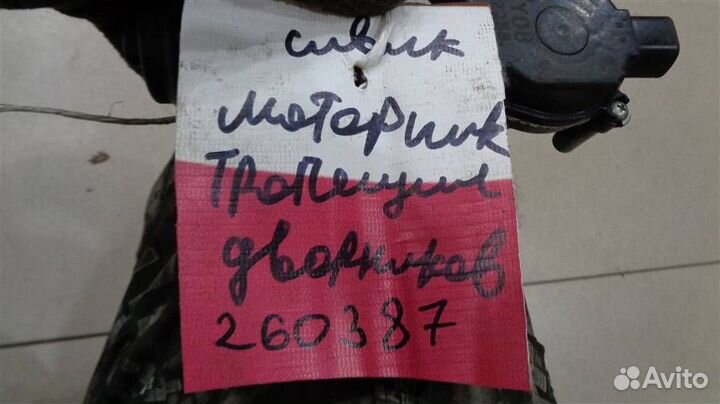 сивик
моторчик
трапеции
дворников
260387
Avito